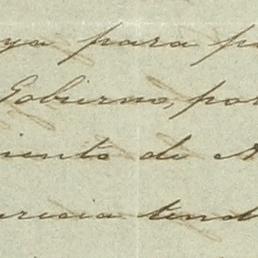 ya para p
Gobierno, por
iento de A
urecia tend